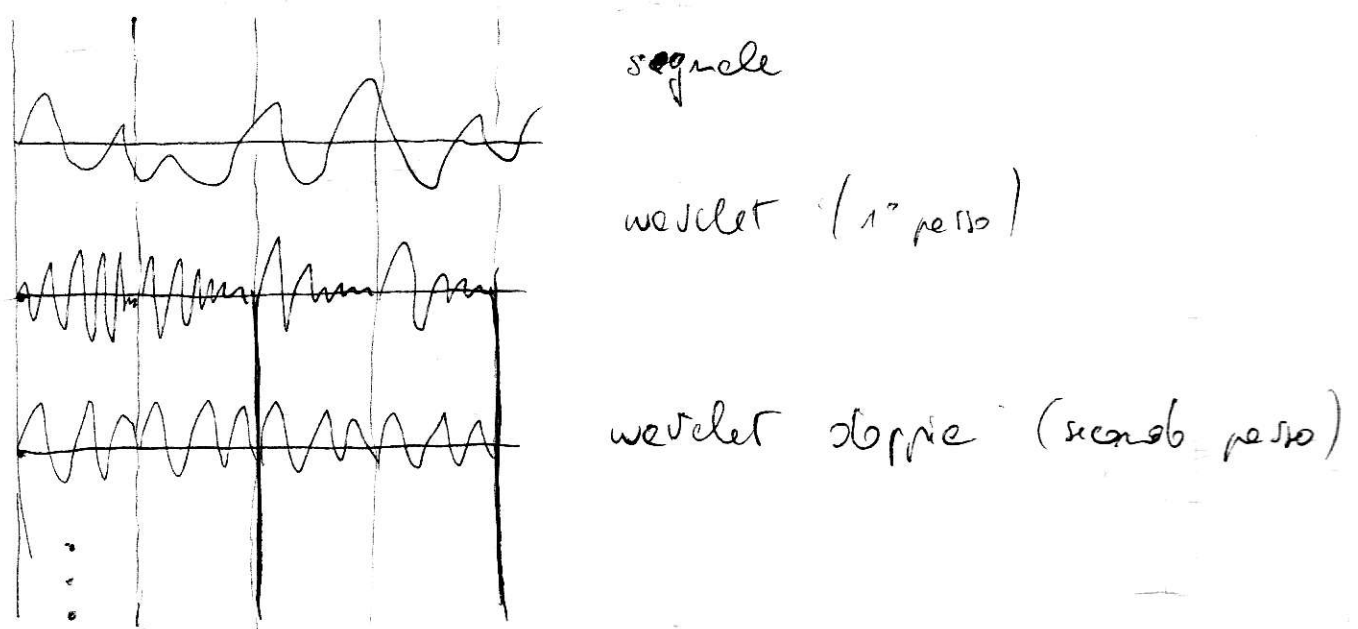 segnale
wavelet (1° passo)
wavelet doppia (secondo passo)